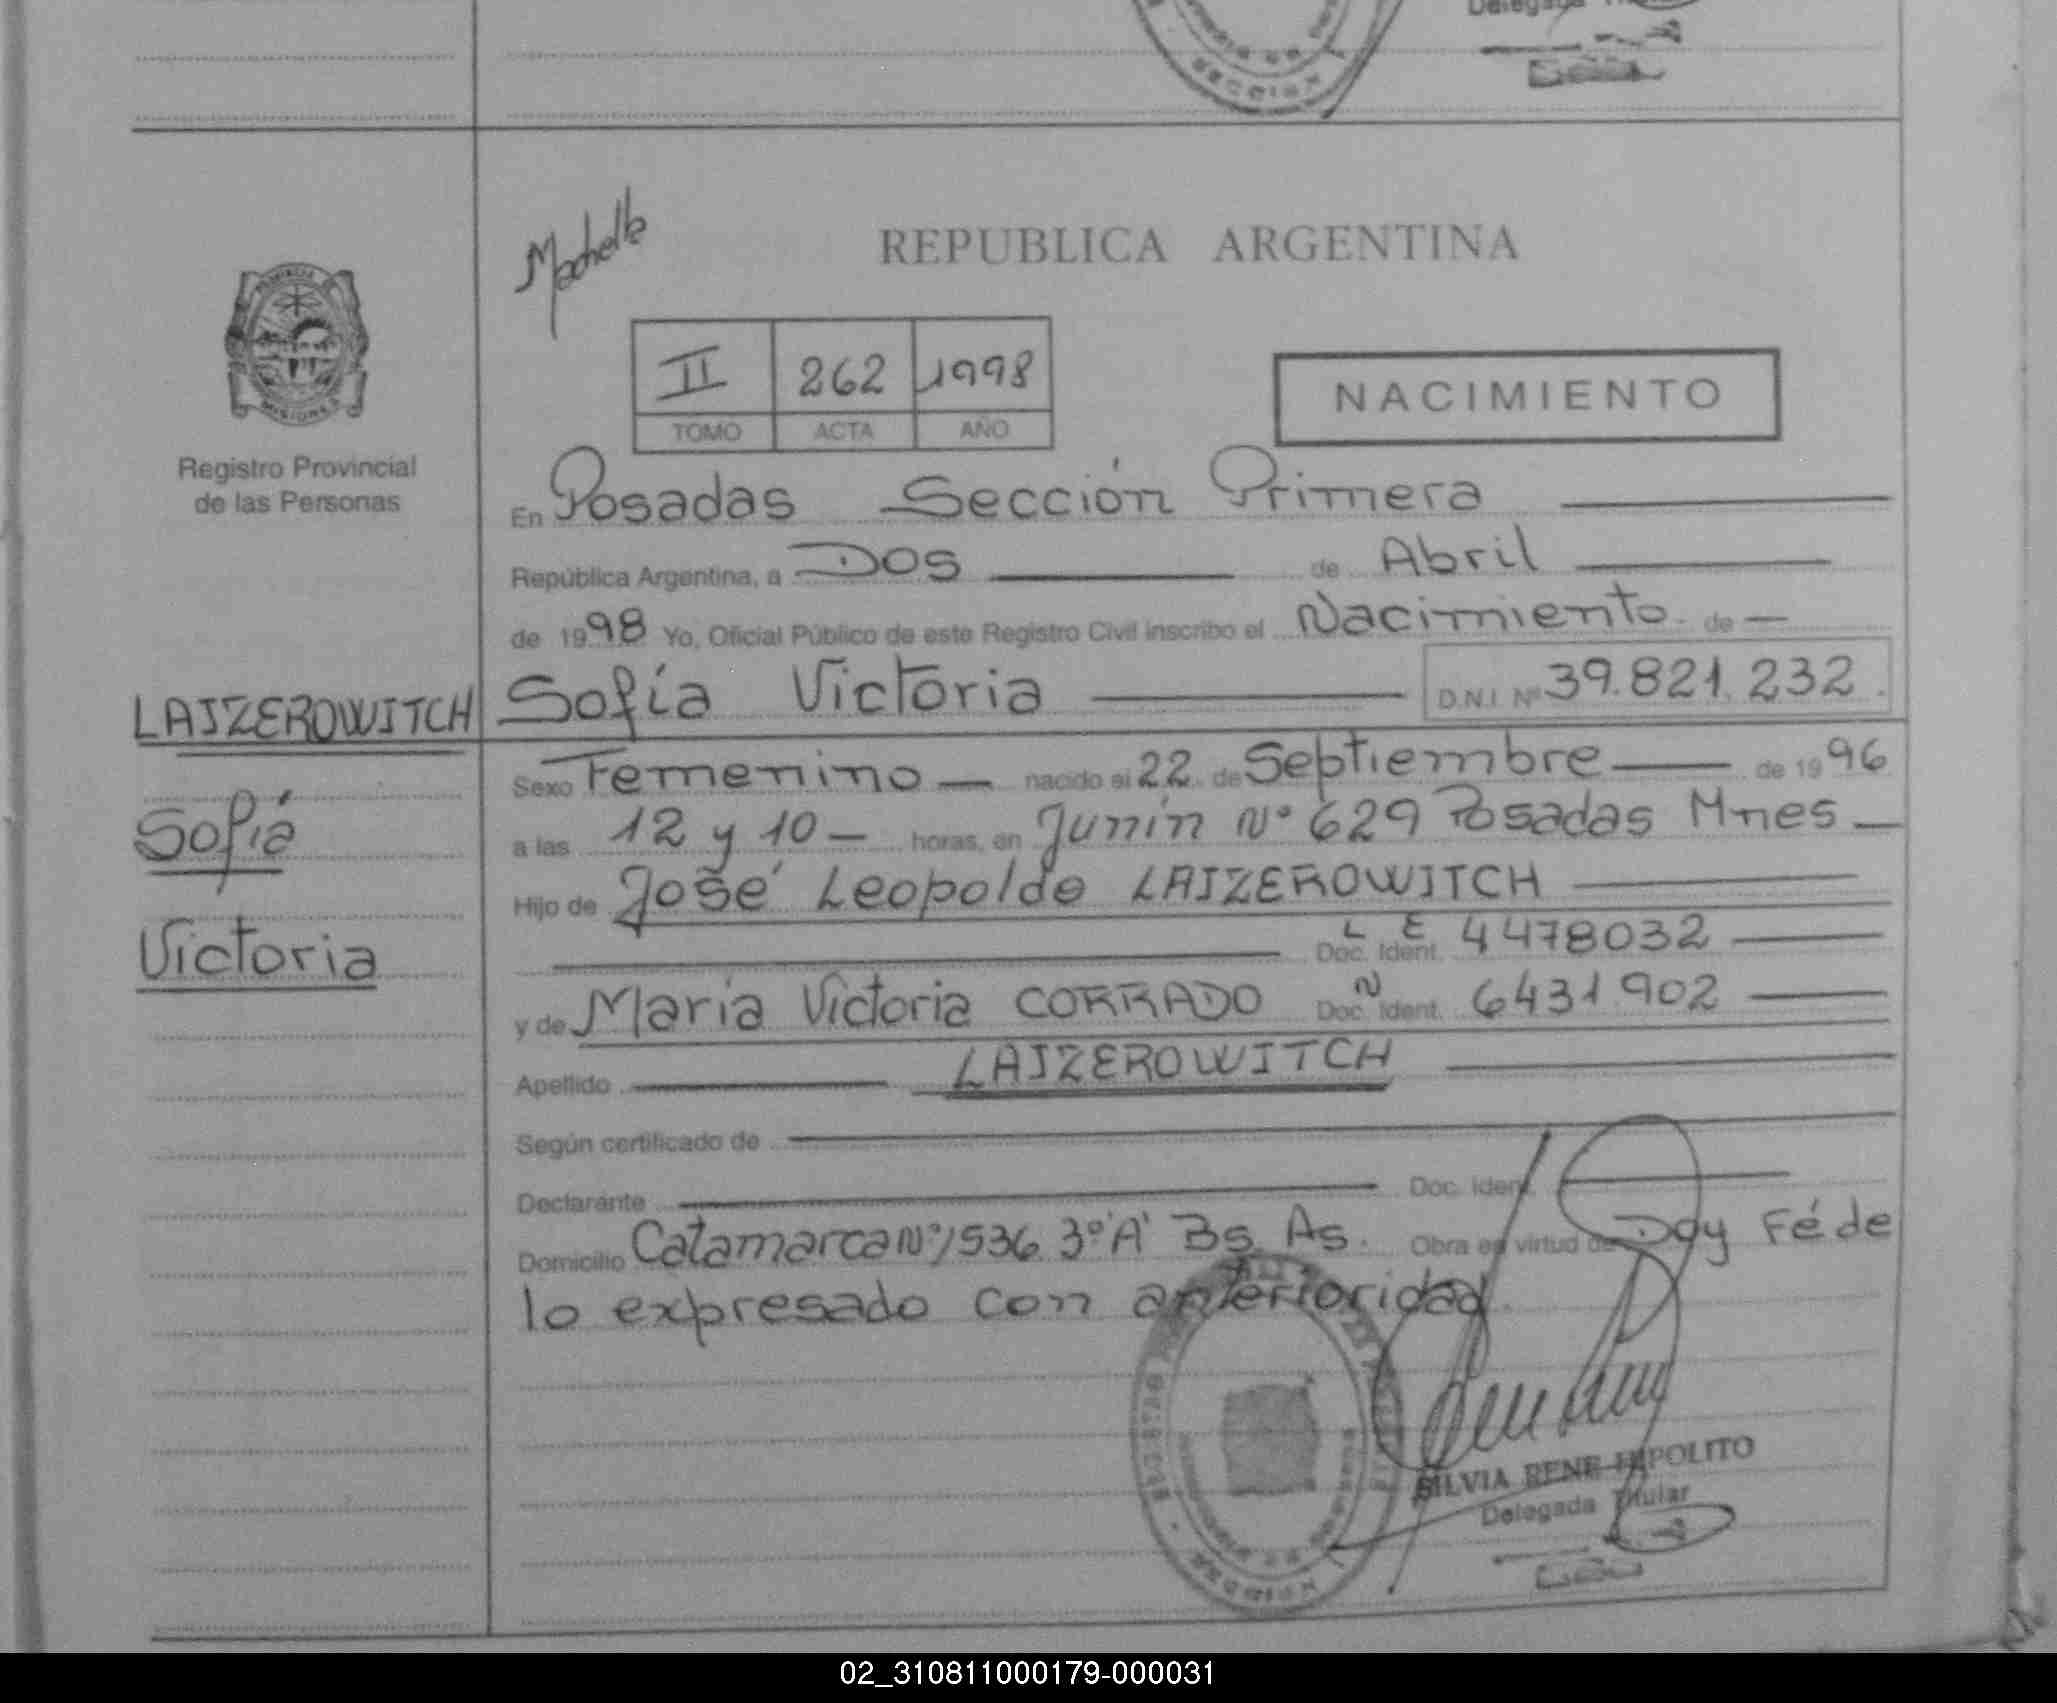 Delegada
SECCION
REPUBLICA ARGENTINA
MISIONES
Registro Provincial
de las Personas
II 262 1998
TOMO ACTA AÑO
NACIMIENTO
En Posadas Sección Primera
República Argentina, a Dos de Abril
de 1998 Yo, Oficial Público de este Registro Civil inscribo el Nacimiento de
LAIZEROWITCH Sofía Victoria D.N.I. Nº 39.821.232
Sexo Femenino nacido el 22 de Septiembre de 1996
Sofía
a las 12 y 10 horas, en Junín Nº 629 Posadas Mnes
Hijo de José Leopoldo LAIZEROWITCH
Doc. Ident. L E 4478032
Victoria
y de María Victoria CORRADO Doc. Ident. N 6431902
Apellido LAIZEROWITCH
Según certificado de
Declarante Doc. Ident.
Domicilio Catamarca Nº 1536 3º 'A' Bs As. Obra en virtud de Doy Fé de
lo expresado con anterioridad
SILVIA RENE HIPOLITO
Delegada Titular
02_310811000179-000031